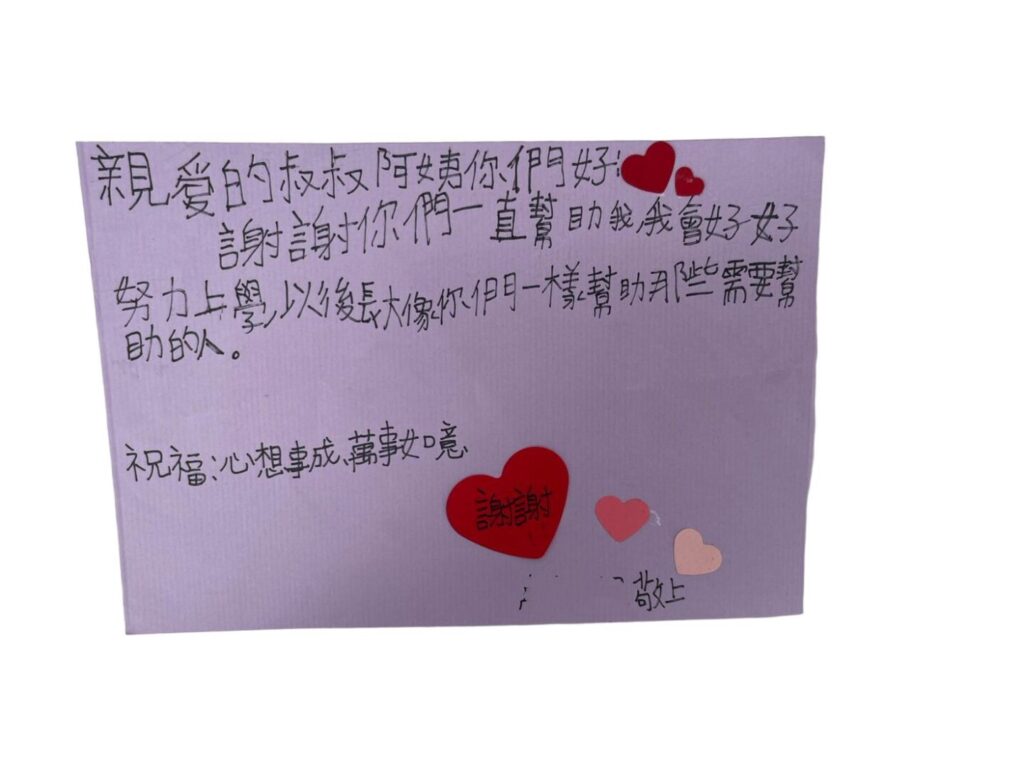 親愛的叔叔阿姨你們好:
謝謝你們一直幫助我,我會好好
努力上學,以後長大像你們一樣幫助那些需要幫
助的人。
祝福:心想事成、萬事如意
謝謝
敬上